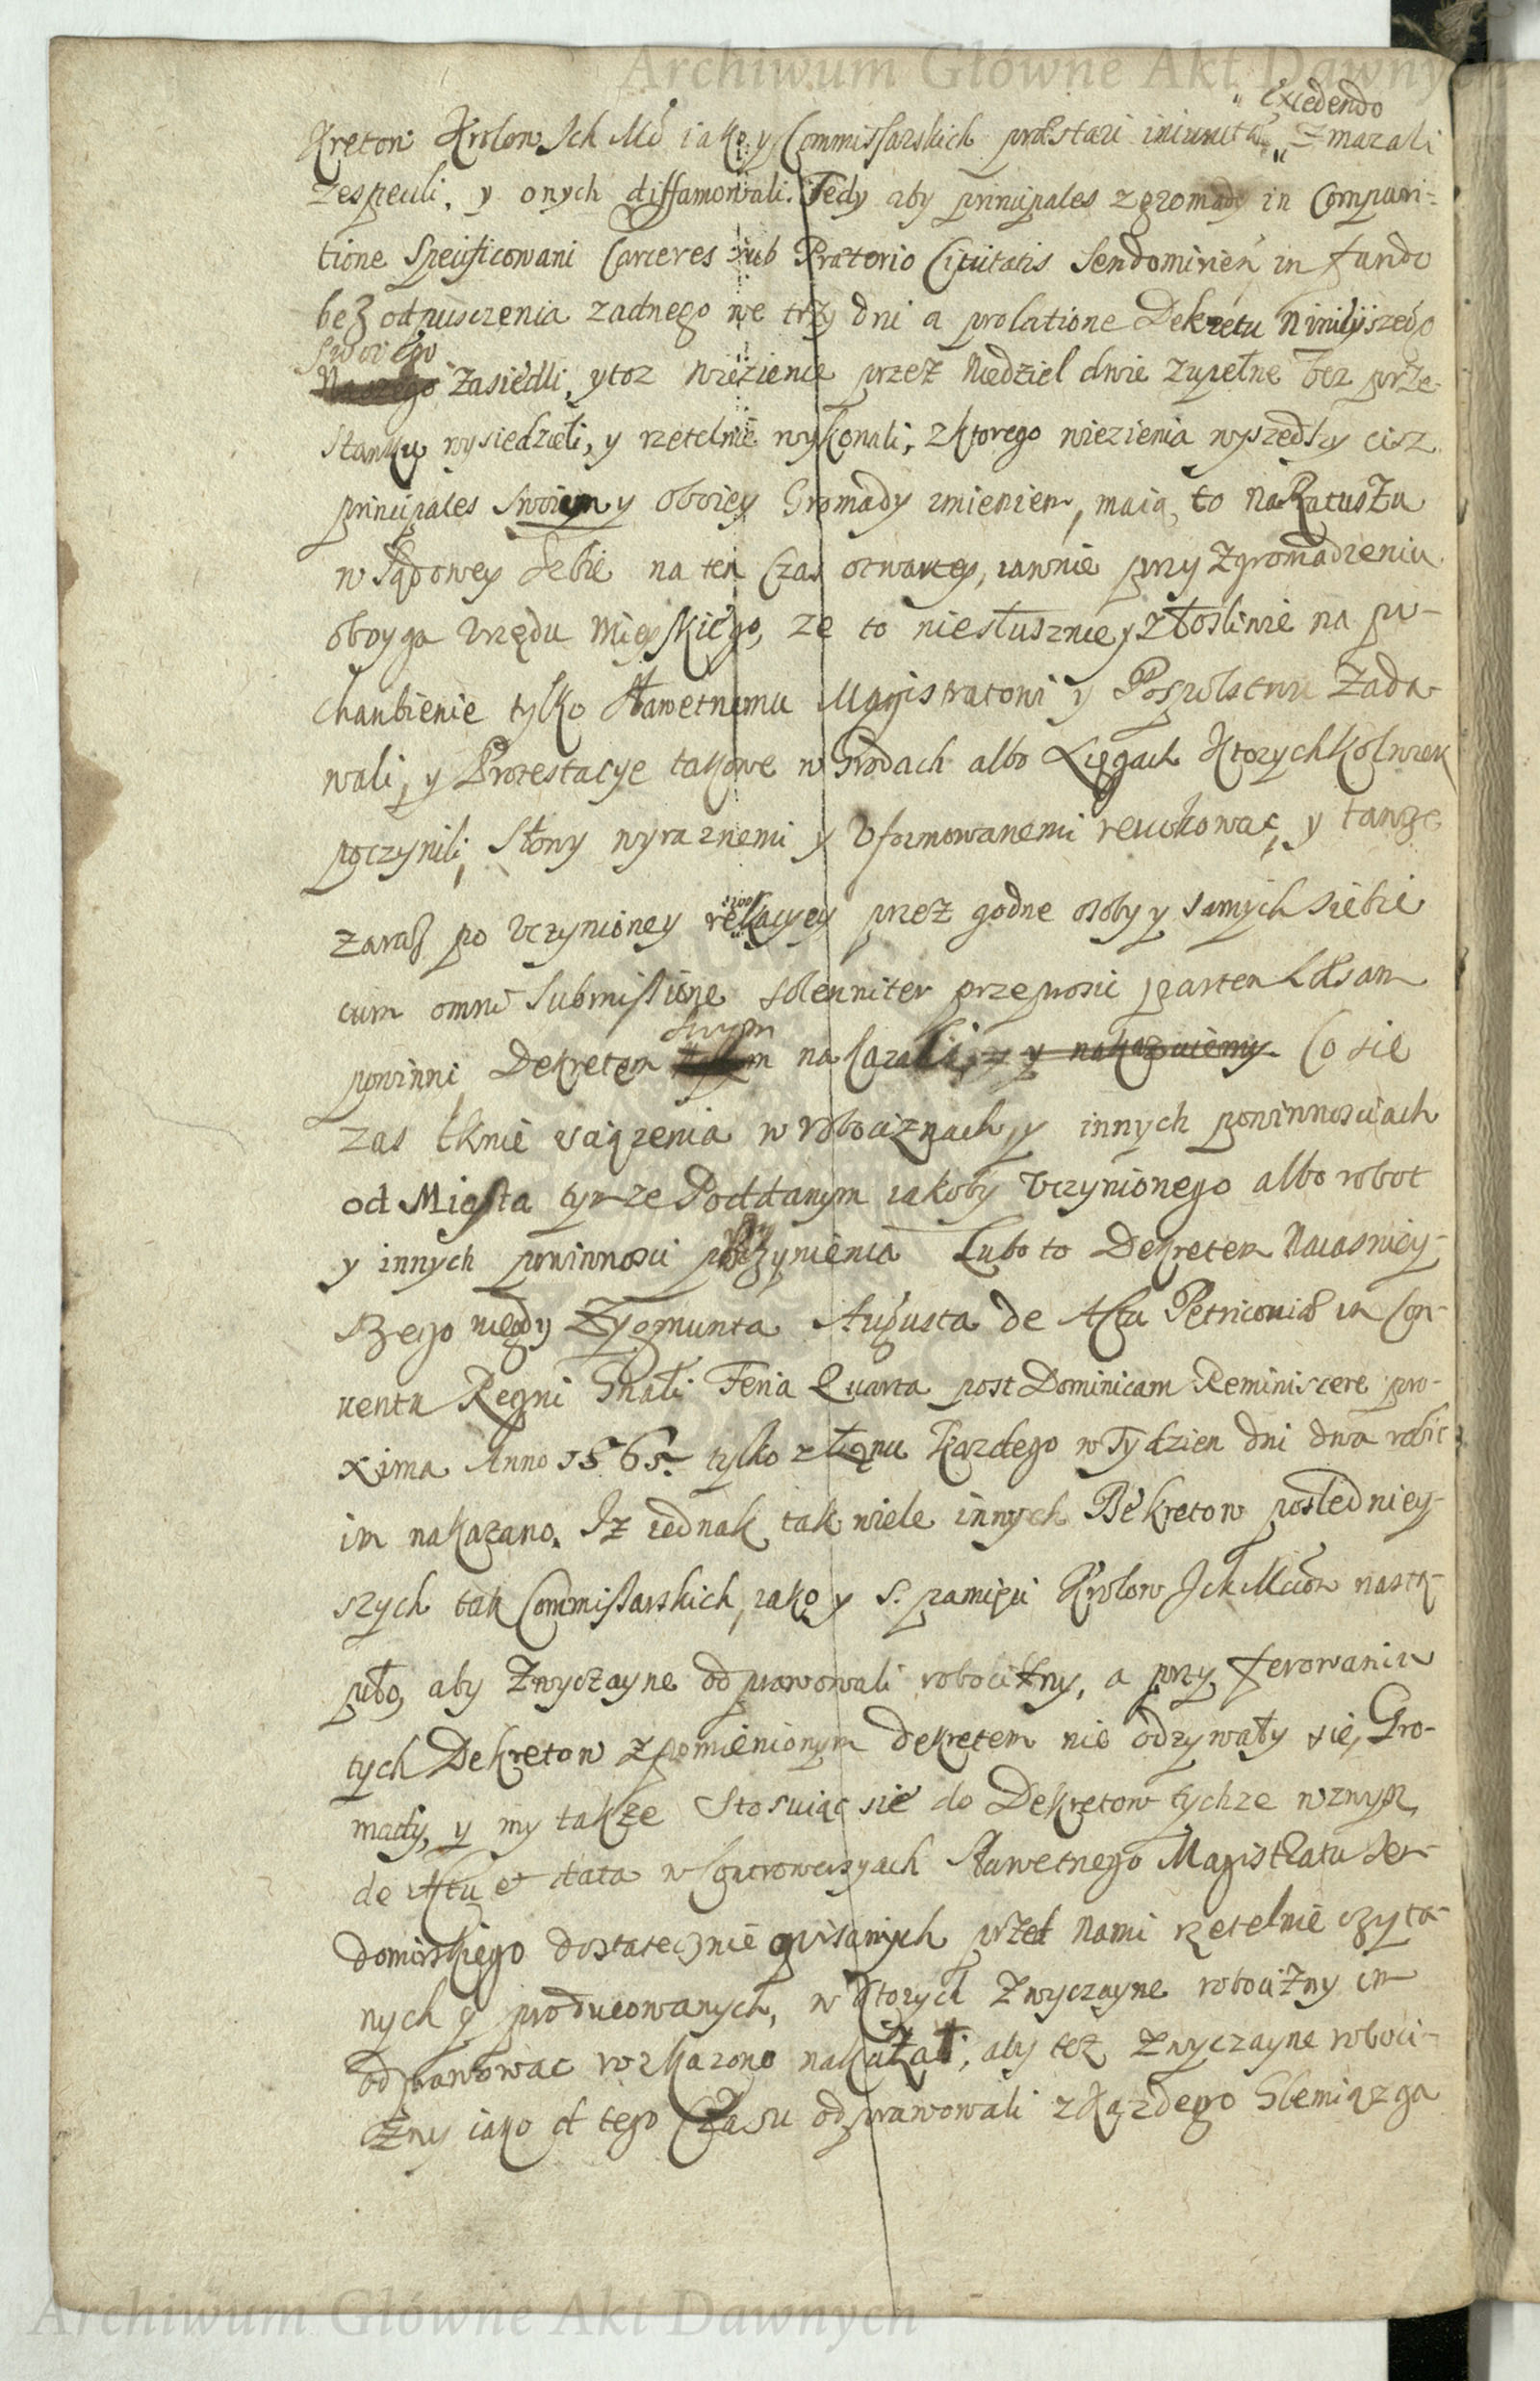 Archiwum Główne Akt Dawnych
Excedendo
kretow Krolow Ich Mć iako y Commissarskich præstari iniuncta, zmazali
zespeuli, y onych diffamowali. Tedy aby principales z gromady in Compari-
tione Specificowani Carceres sub Prætorio Civitatis Sendomirien in fundo
bez odpusczenia zadnego we trzy dni a prolatione Dekretu ninieyszego
swoiego
Naszego zasiedli, y toz wiezienie przez Niedziel dwie zupełne bez prze-
stanku wysiedzieli, y rzetelnie wykonali; z ktorego wiezienia wyszedszy cisz
principales swoim y oboiey Gromady imieniem, maią to na Ratuszu
w Sądowey Izbie na ten czas otwartey, iawnie przy zgromadzeniu
oboyga Urzędu Mieyskiego, ze to niesłusznie y złosliwie na po-
hanbienie tylko Sławetnemu Magistratowi y Pospolstwu zada-
wali, y Protestacye takowe w Grodach albo Xięgach ktorychkolwiek
poczynili, słowy wyraznemi y uformowanemi rewokowac, y tamze
zaraz po uczynioney rewokacyey przez godne osoby y samych siebie
cum omni submissione solenniter przeprosic partem læsam
swym
powinni, Dekretem nakazali, y y nakazuiemy. Co sie
zas tknie uciązenia w robociznach, y innych powinnosciach
od Miasta tymze Poddanym iakoby uczynionego albo robot
y innych powinnosci przyczynienia Lubo to Dekretem Naiasniey-
szego niegdy Zygmunta Augusta de Actu Petricoviæ in Con-
ventu Regni Gnali Feria Quarta post Dominicam Reminiscere pro-
xima Anno 1565. tylko z Łanu kazdego w Tydzien dni dwa robic
im nakazano. Iz iednak tak wiele innych Dekretow posledniey-
szych tak Commissarskich, iako y S. pamięci Krolow Ich Mciow nastą-
piło, aby zwyczayne odprawowali robocizny, a przy ferowaniu
tych Dekretow z pomienionym dekretem nie odzywały sie, Gro-
mady, y my takze stosuiąc sie do Dekretow tychze wzwysz
de Actu et data w Controwersyach Sławetnego Magistratu Sen-
domirskiego dostatecznie opisanych przed nami rzetelnie czyta-
nych y producowanych, w ktorych zwyczayne robocizny im
odprawowac rozkazono nakazali, aby tez zwyczayne roboci-
zny iako d tego czasu odprawowali z kazdego Slemiązga
Archiwum Główne Akt Dawnych